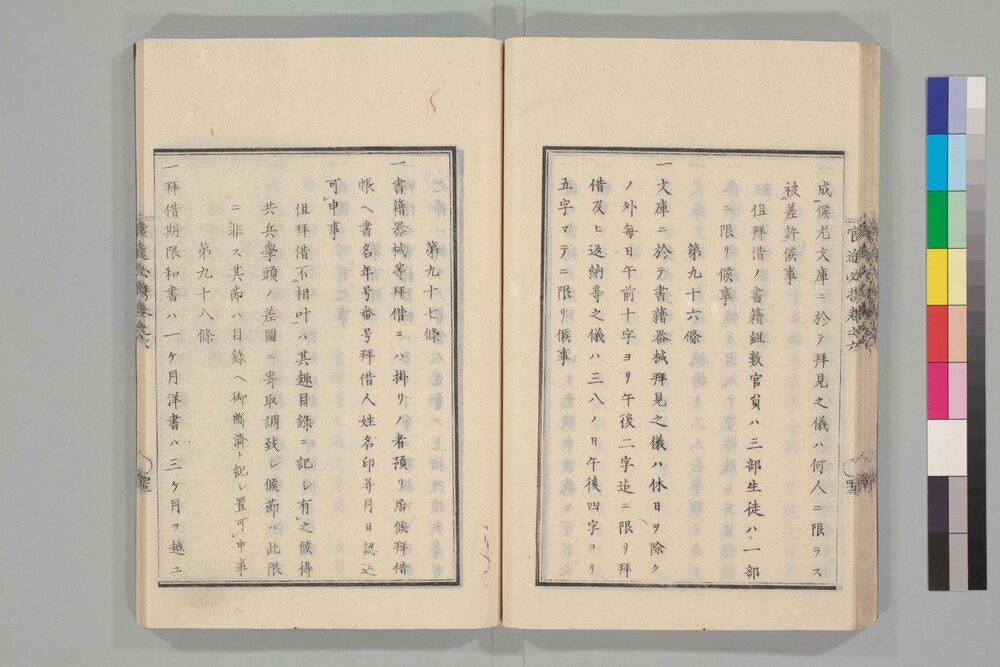 成候尤文庫ニ於テ拜見之儀ハ何人ニ限ラス
被差許候事
但拜借ノ書籍組數官員ハ三部生徒ハ一部
ニ限リ候事
第九十六條
一文庫ニ於テ書籍器械拜見之儀ハ休日ヲ除ク
ノ外毎日午前十字ヨリ午後二字迠ニ限リ拜
借及ヒ返納等之儀ハ三八ノ日午後四字ヨリ
五字マテニ限リ候事
第九十七條
一書籍器械等拜借ニハ掛リノ者預リ居候拜借
帳ヘ書名年号番号拜借人姓名印并月日認込
可申事
但拜借不相叶ハ其趣目錄ニ記シ有之候得
共兵學頭ノ差圖ニ寄取調致シ候節ハ此限
ニ非ス其節ハ目錄ヘ御斷濟ト記シ置可申事
第九十八條
一拜借期限和書ハ一ケ月洋書ハ三ケ月ヲ越ユ